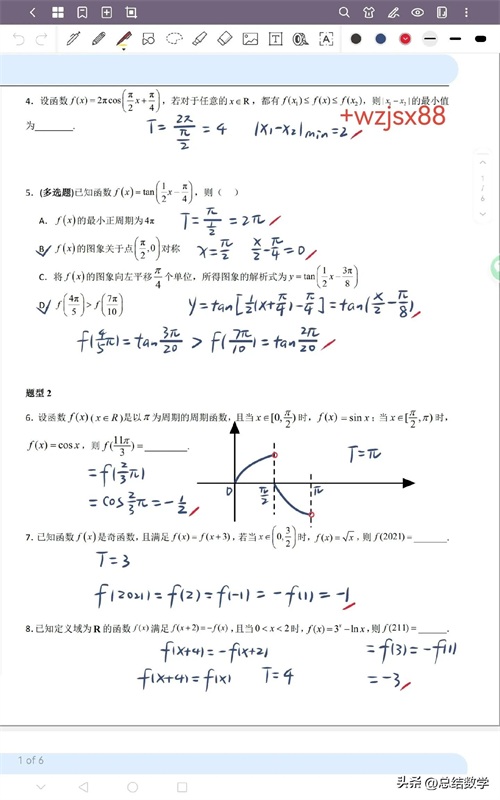 4. 设函数 f(x)=2πcos(π/2 x+π/4)，若对于任意的 x∈R，都有 f(x₁)≤f(x)≤f(x₂)，则|x₁−x₂|的最小值
为________.
+wzjsx88
T=2π/(π/2)=4 |x₁-x₂|min=2
5. (多选题)已知函数 f(x)=tan(1/2 x−π/4)，则（ ）
A. f(x)的最小正周期为4π
T=π/(1/2)=2π
B. f(x)的图象关于点(π/2,0)对称
x=π/2 x/2-π/4=0
C. 将f(x)的图象向左平移π/4个单位，所得图象的解析式为 y=tan(1/2 x−3π/8)
D. f(4π/5)>f(7π/10)
y=tan[1/2(x+π/4)-π/4]=tan(x/2-π/8)
f(4/5π)=tan3π/20 > f(7π/10)=tan2π/20
题型 2
6. 设函数 f(x)(x∈R)是以π为周期的周期函数，且当x∈[0,π/2)时，f(x)=sinx；当x∈[π/2,π)时，
f(x)=cosx，则f(11π/3)=________.
T=π
=f(2/3π)
=cos2/3π=-1/2
0 π/2 π
7. 已知函数f(x)是奇函数，且满足f(x)=f(x+3)，若当x∈(0,3/2)时，f(x)=√x，则f(2021)=________.
T=3
f(2021)=f(2)=f(-1)=-f(1)=-1
8. 已知定义域为R的函数f(x)满足f(x+2)=−f(x)，且当0<x<2时，f(x)=3ˣ−lnx，则f(211)=______.
f(x+4)=-f(x+2) =f(3)=-f(1)
f(x+4)=f(x) T=4 =-3
1 of 6
头条 @总结数学